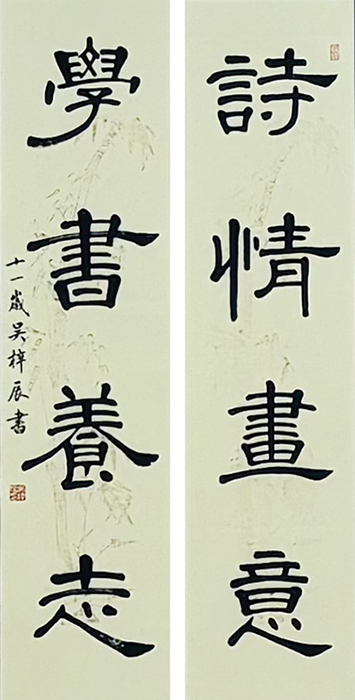 詩情畫意
學書養志
十一歲吴梓辰書